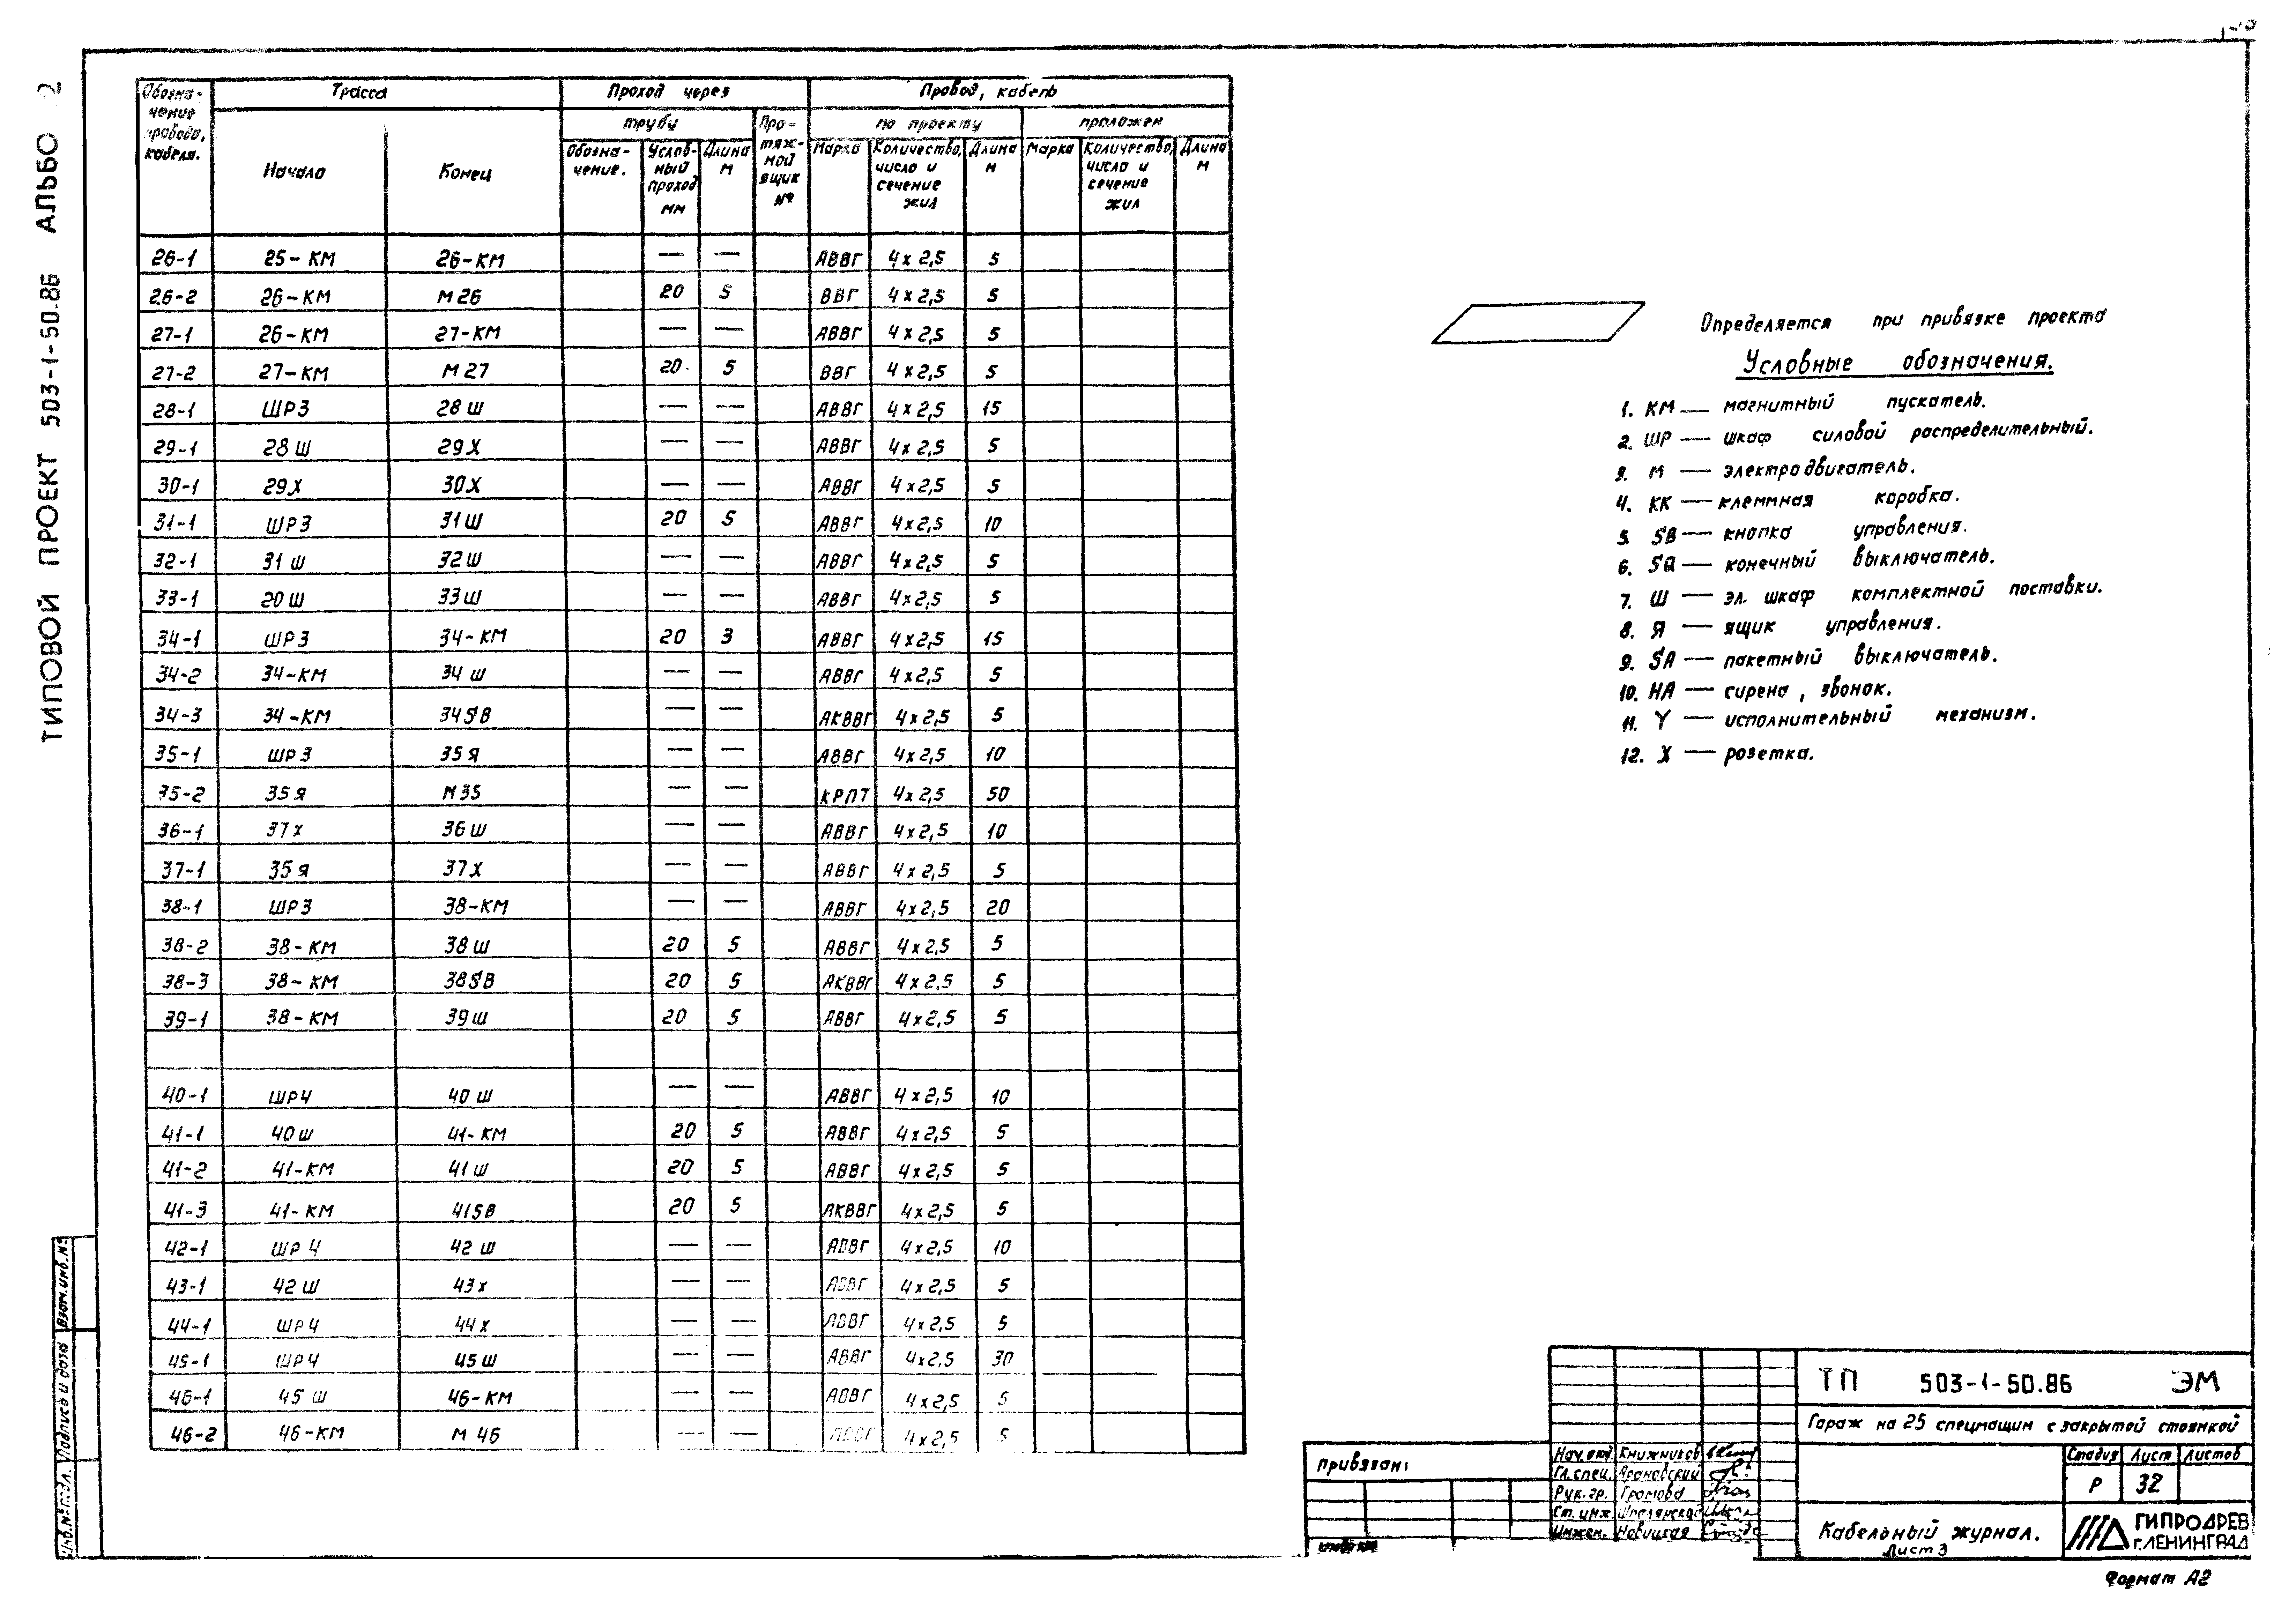 ТИПОВОЙ ПРОЕКТ 503-1-50.86 АЛЬБО 2
Обозна-чение провода, кабеля. Трасса Проход через Провод, кабель
Начало Конец трубу Про-тяж-ной ящик № по проекту проложен
Обозна-чение. Услов-ный проход мм Длина м Марка Количество, число и сечение жил Длина м Марка Количество, число и сечение жил Длина м
26-1 25-КМ 26-КМ — — АВВГ 4х2,5 5
26-2 26-КМ М26 20 5 ВВГ 4х2,5 5
27-1 26-КМ 27-КМ — — АВВГ 4х2,5 5
27-2 27-КМ М27 20 5 ВВГ 4х2,5 5
28-1 ШР3 28Ш — — АВВГ 4х2,5 15
29-1 28Ш 29Х — — АВВГ 4х2,5 5
30-1 29Х 30Х — — АВВГ 4х2,5 5
31-1 ШР3 31Ш 20 5 АВВГ 4х2,5 10
32-1 31Ш 32Ш — — АВВГ 4х2,5 5
33-1 20Ш 33Ш — — АВВГ 4х2,5 5
34-1 ШР3 34-КМ 20 3 АВВГ 4х2,5 15
34-2 34-КМ 34Ш — — АВВГ 4х2,5 5
34-3 34-КМ 34SB — — АКВВГ 4х2,5 5
35-1 ШР3 35Я — — АВВГ 4х2,5 10
35-2 35Я М35 — — КРПТ 4х2,5 50
36-1 37Х 36Ш — — АВВГ 4х2,5 10
37-1 35Я 37Х — — АВВГ 4х2,5 5
38-1 ШР3 38-КМ — — АВВГ 4х2,5 20
38-2 38-КМ 38Ш 20 5 АВВГ 4х2,5 5
38-3 38-КМ 38SB 20 5 АКВВГ 4х2,5 5
39-1 38-КМ 39Ш 20 5 АВВГ 4х2,5 5
40-1 ШР4 40Ш — — АВВГ 4х2,5 10
41-1 40Ш 41-КМ 20 5 АВВГ 4х2,5 5
41-2 41-КМ 41Ш 20 5 АВВГ 4х2,5 5
41-3 41-КМ 41SB 20 5 АКВВГ 4х2,5 5
42-1 ШР4 42Ш — — АВВГ 4х2,5 10
43-1 42Ш 43Х — — АВВГ 4х2,5 5
44-1 ШР4 44Х — — АВВГ 4х2,5 5
45-1 ШР4 45Ш — — АВВГ 4х2,5 30
46-1 45Ш 46-КМ — — АВВГ 4х2,5 5
46-2 46-КМ М46 — — АВВГ 4х2,5 5
Определяется при привязке проекта
Условные обозначения.
1. КМ — магнитный пускатель.
2. ШР — шкаф силовой распределительный.
3. М — электродвигатель.
4. КК — клеммная коробка.
5. SB — кнопка управления.
6. SQ — конечный выключатель.
7. Ш — эл. шкаф комплектной поставки.
8. Я — ящик управления.
9. SA — пакетный выключатель.
10. НА — сирена, звонок.
11. Y — исполнительный механизм.
12. Х — розетка.
Инв.№ подл. Подпись и дата Взам.инв.№
Привязан:
Нач.отд. Книжников
Гл.спец. Арановский
Рук.гр. Громова
Ст.инж.
Инжен. Новицкая
ТП 503-1-50.86 ЭМ
Гараж на 25 спецмашин с закрытой стоянкой
Стадия Лист Листов
Р 32
Кабельный журнал.
Лист 3
ГИПРОДРЕВ
г.ЛЕНИНГРАД
Формат А2